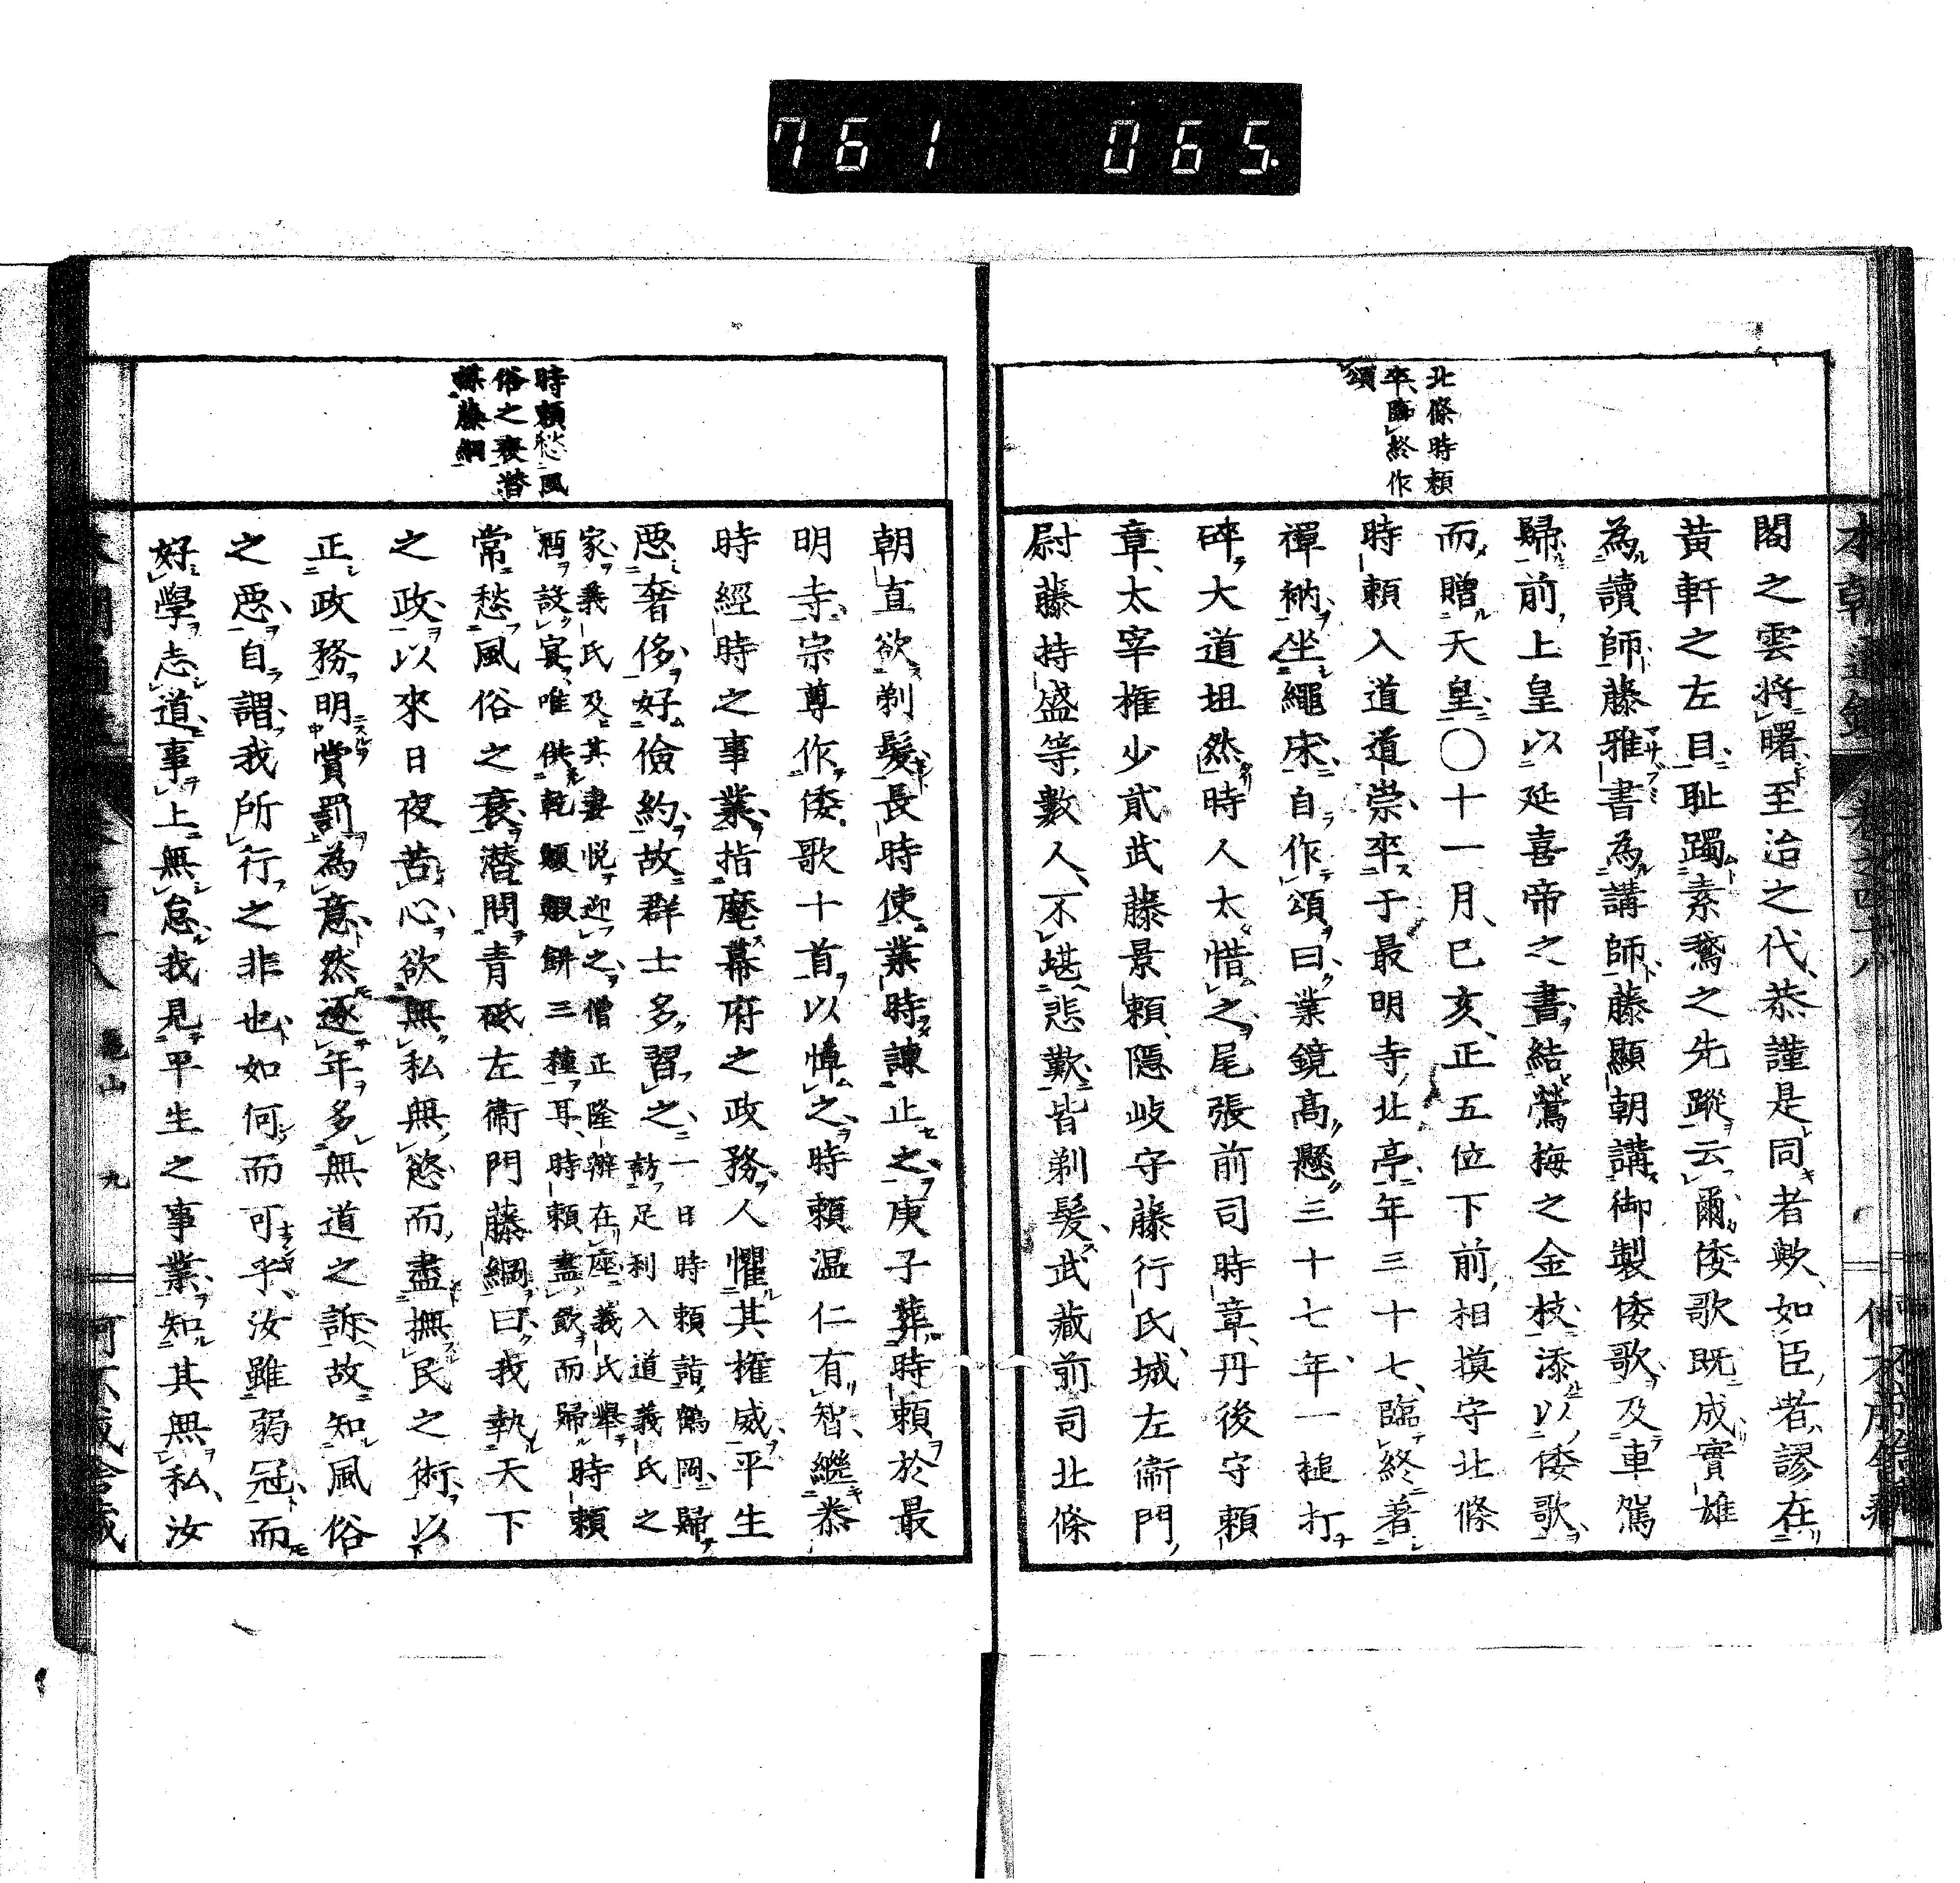 761 065.
北條時頼
卒臨終作
頌
閣之雲將曙至治之代、恭謹是同者歟、如臣者、謬在
黃軒之左目恥躅素鵞之先蹤云爾倭歌既成實雄
為讀師藤雅書為講師藤顯朝講御製倭歌及車駕
歸前上皇以延喜帝之書結鶯梅之金枝添以倭歌
而贈天皇〇十一月、己亥、正五位下前相摸守北條
時頼入道道崇卒于最明寺北亭年三十七、臨終著
禪衲坐繩床自作頌曰業鏡高懸三十七年一槌打
碎大道坦然時人太惜之尾張前司時章、丹後守頼
章、太宰權少貳武藤景頼、隱岐守藤行氏、城左衞門
尉藤持盛等數人、不堪悲歎皆剃髮、武藏前司北條
時頼愁風
俗之衰潛
謀藤綱
朝直欲剃髮長時使業時諫止之庚子葬時頼於最
明寺宗尊作倭歌十首以悼之時頼温仁有智、繼泰
時經時之事業指麾幕府之政務人懼其權威平生
惡奢侈好儉約故群士多習之一日時頼詣鶴岡歸訪足利入道義氏之
家義氏及其妻悅迎之僧正隆辨在座義氏擧酒設宴唯供乾鰒鰕餅三種耳、時頼盡飲而歸時頼
常愁風俗之衰潛問青砥左衞門藤綱曰我執天下
之政以來日夜苦心欲無私無慾而盡撫民之術以
正政務明賞罰為意然逐年多無道之訴故知風俗
之惡自謂我所行之非也如何而可乎、汝雖弱冠而
好學志道事上無怠我見平生之事業知其無私、汝
龜山 九